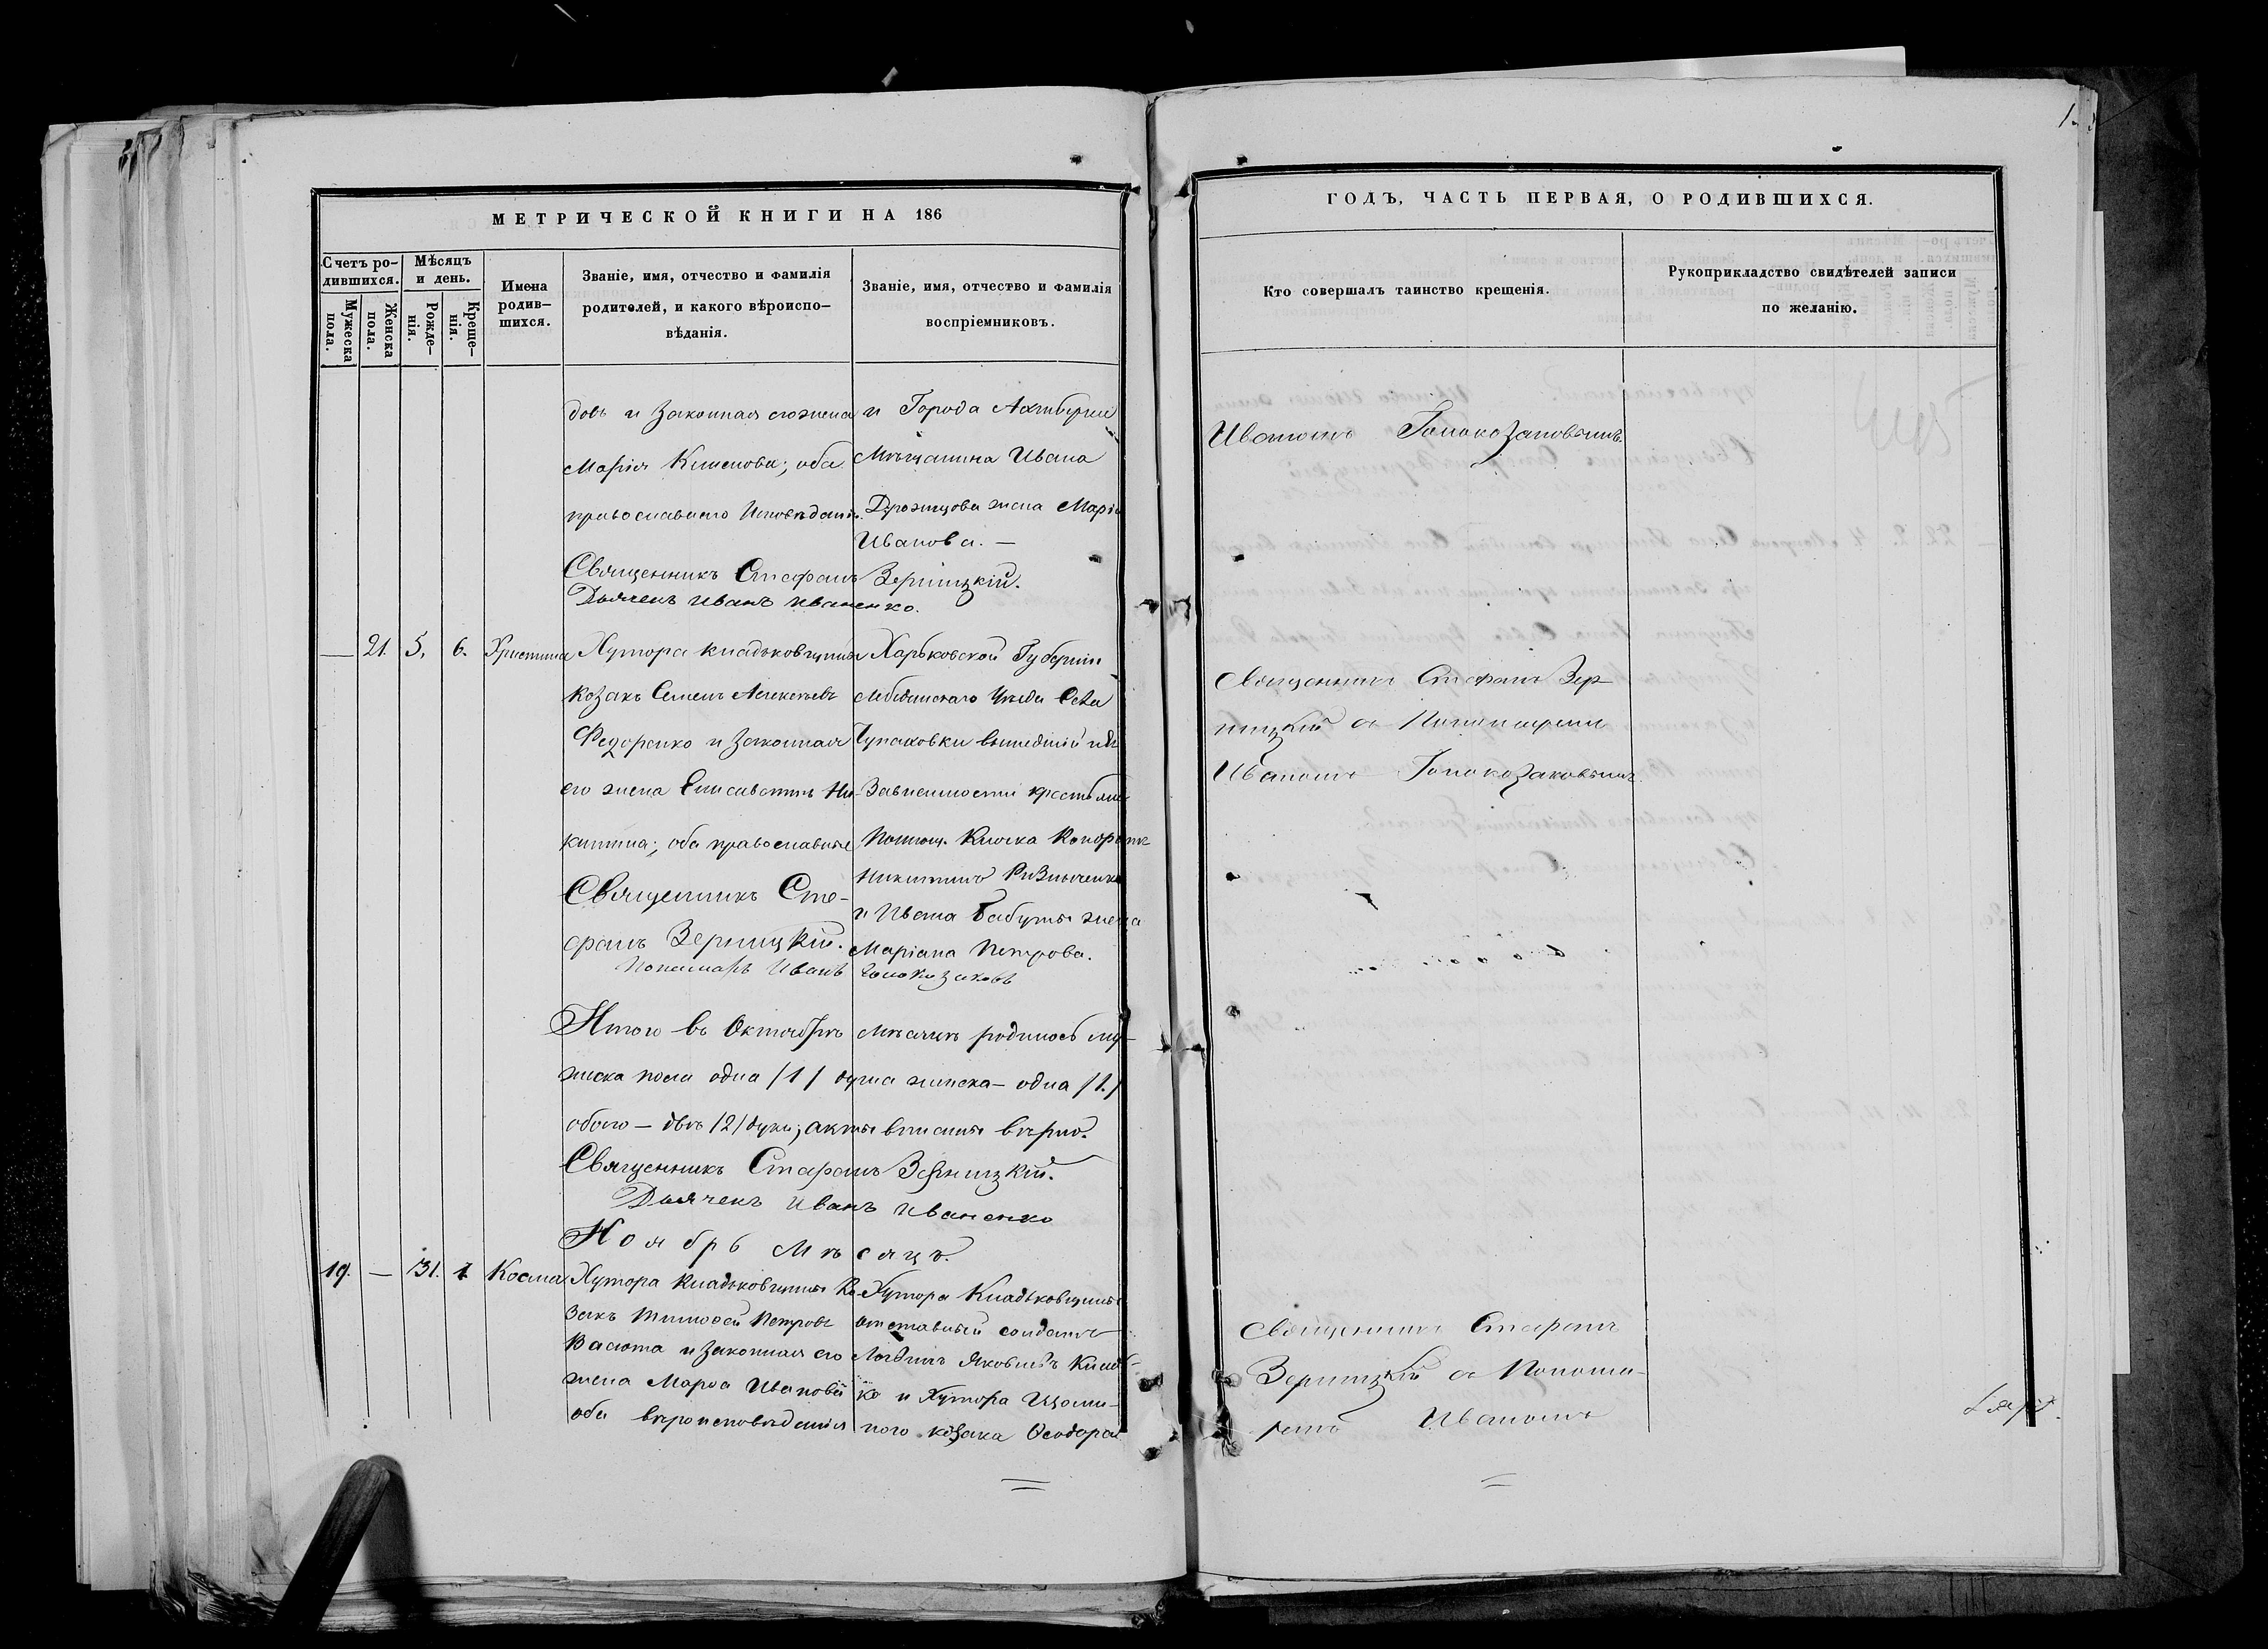 МЕТРИЧЕСКОЙ КНИГИ НА 186
Счетъ ро-
дившихся.
Мужеска
пола.
Женска
пола.
Мѣсяцъ
и день.
Рожде-
нія.
Креще-
нія.
Имена
родив-
шихся.
Званіе, имя, отчество и фамилія
родителей, и какого вѣроиспо-
вѣданія.
Званіе, имя, отчество и фамилія
воспріемниковъ.
довъ и законная его жена
Марія Климова; оба
православнаго исповѣданія.
и Города
Мѣщанина Ивана
жена Марія
Иванова. —
Священникъ Стефанъ Зерницкій.
Дьячекъ Иванъ Иваненко.
— 21. 5. 6. Христина
Хутора Кладьковщины
козакъ Семенъ Алексѣевъ
Федоренко и законная
его жена Елисаветта Ни-
китина; оба православные
Священникъ Сте-
фанъ Зерницкій.
Харьковской Губерніи
Лебединскаго Уѣзда Села
Чупаховки вышедшій изъ
зависимости крестьянинъ
Никитинъ
и Ивана Бабуты жена
Маріана Петрова.
Пономарь Иванъ Голоказаковъ
Итого въ Октябрѣ мѣсяцѣ родилось му-
жеска пола одна /1/ душа женска — одна /1./
обоего — двѣ /2/ души; акты вписаны вѣрно.
Священникъ Стефанъ Зерницкій.
Дьячекъ Иванъ Иваненко
Ноябрь Мѣсяцъ.
19. — 31. 1 Косма
Хутора Кладьковщины Ко-
закъ Тимофей Петровъ
Васюта и законная его
жена Марфа Иванова
оба вѣроисповѣданія
Хутора Кладьковщины
отставный солдатъ
Логвинъ Яковлевъ
ко и Хутора
ного козака Ѳеодора
ГОДЪ, ЧАСТЬ ПЕРВАЯ, О РОДИВШИХСЯ.
Кто совершалъ таинство крещенія.
Рукоприкладство свидѣтелей записи
по желанію.
Иваномъ Голоказаковымъ.
Священникъ Стефанъ Зер-
ницкій съ Пономаремъ
Иваномъ Голоказаковымъ.
Священникъ Стефанъ
Зерницкій съ Понома-
ремъ Иваномъ